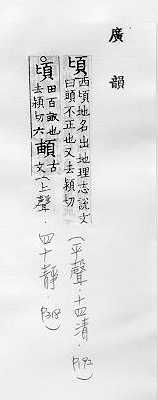 廣韻
頃西頃地名出地理志說文
曰頭不正也又去穎切
(平聲·十四清·P192)
頃田百畝也
去穎切六𩓑古文
(上聲·四十靜·P318)